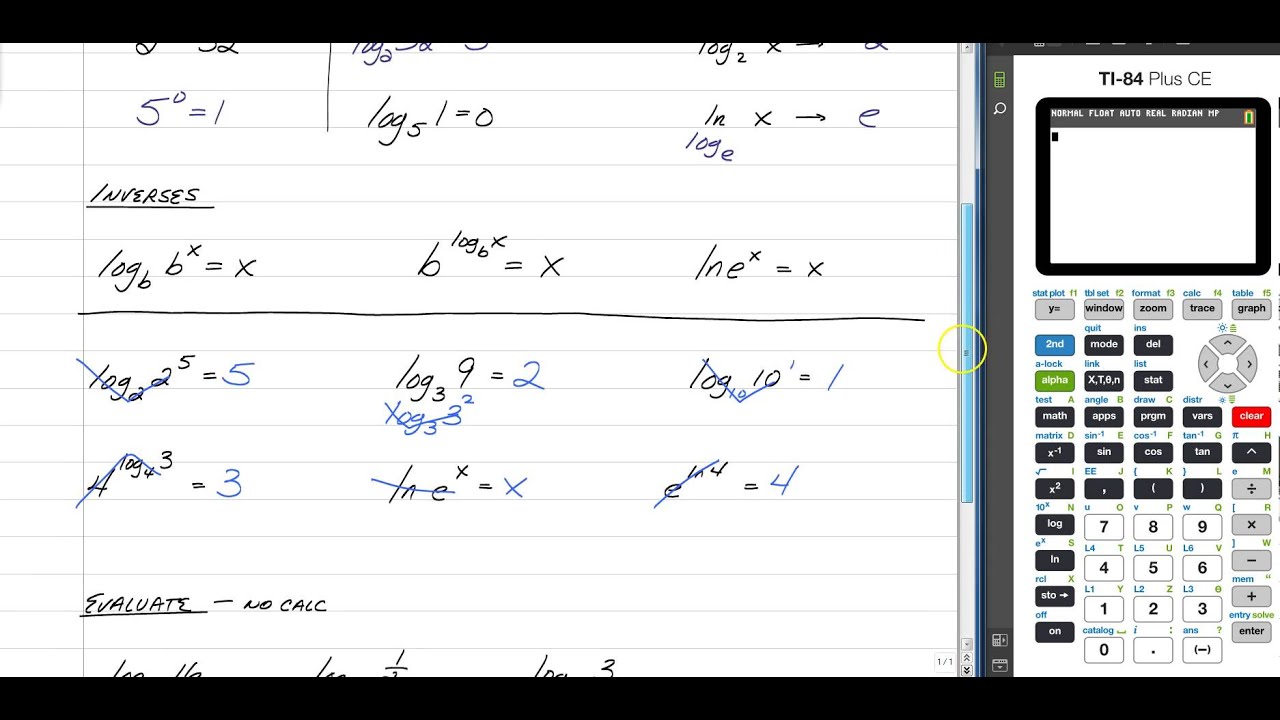 2 32 log₂32 5 log₂ x → 2
5⁰ = 1 log₅ 1 = 0 ln x → e
logₑ
INVERSES
log_b b^x = x b^(log_b x) = x ln e^x = x
log₂ 2⁵ = 5 log₃ 9 = 2 log₁₀ 10¹ = 1
log₃ 3²
4^(log₄ 3) = 3 ln e^x = x e^(ln 4) = 4
EVALUATE — NO CALC
log 16 log 1/ log 3
1/1
TI-84 Plus CE
NORMAL FLOAT AUTO REAL RADIAN MP
stat plot f1 tbl set f2 format f3 calc f4 table f5
y= window zoom trace graph
quit ins
2nd mode del
a-lock link list
alpha X,T,θ,n stat
test A angle B draw C distr
math apps prgm vars clear
matrix D sin⁻¹ E cos⁻¹ F tan⁻¹ G π H
x⁻¹ sin cos tan ^
√ I EE J { K } L e M
x² , ( ) ÷
10ˣ N u O v P w Q [ R
log 7 8 9 ×
eˣ S L4 T L5 U L6 V ] W
ln 4 5 6 −
rcl X L1 Y L2 Z L3 θ mem "
sto → 1 2 3 +
off catalog i : ans ? entry solve
on 0 . (−) enter